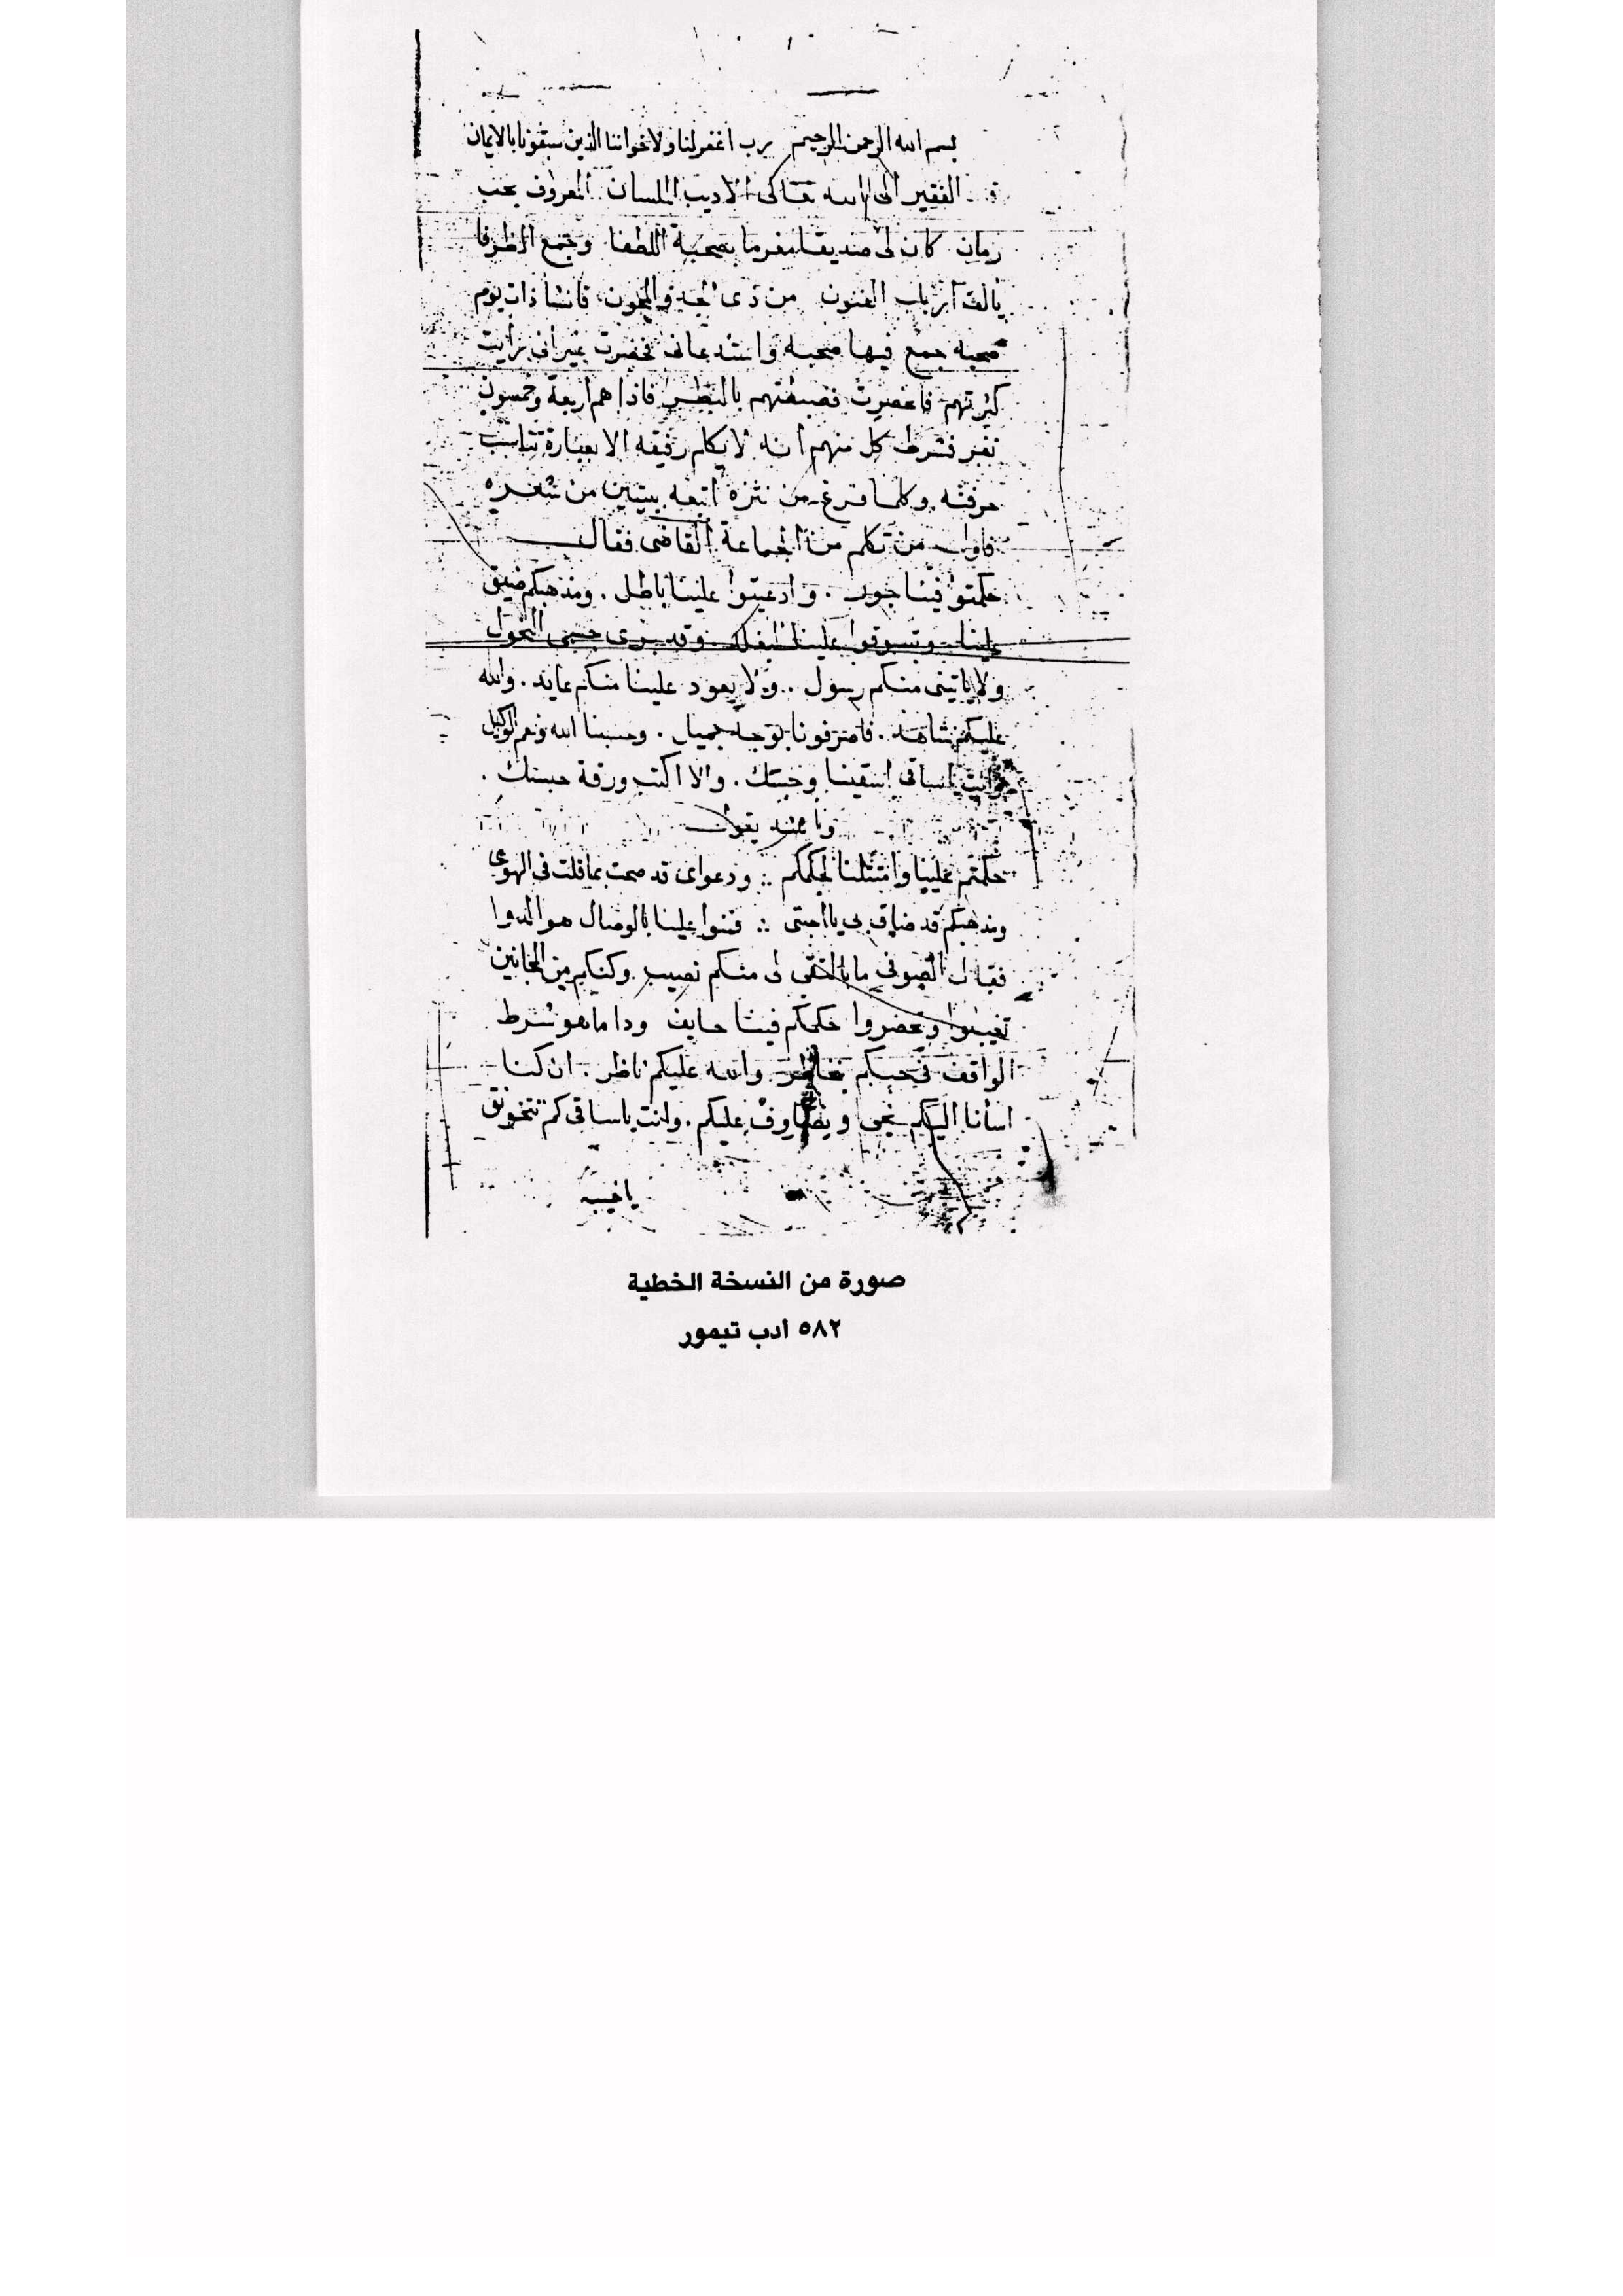 بسم الله الرحمن الرحيم رب اغفر لنا ولاخواننا الذين سبقونا بالايمان
الفقير الى الله تعالى الاديب اللسان المعروف بمحب
زمان كان لى صديقا مغرما بصحبة اللطفا وجمع الظرفا
يالف ارباب الفنون من ذى الجد والمجون فانشا ذات يوم
صحبه جمع فيها صحبه واستدعانى فحضرت غير انى رايت
كثرتهم فاحضرت فضبطتهم بالنظر فاذا هم اربعة وخمسون
نفر فشرط كل منهم انه لا يكلم رفيقه الا بعبارة تناسب
حرفته وكلما فرغ من نثره اتبعه ببيتين من شعره
فاول من تكلم من الجماعة القاضى فقال
حكمتوا فينا جور . وادعيتوا علينا باطل . ومذهبكم ضيق
علينا وتسوقوا علينا
ولا ياتينى منكم رسول . ولا يعود علينا منكم عايد . والله
عليكم شاهد . فاصرفونا بوجه جميل . وحسبنا الله ونعم الوكيل
وانت ياساقى اسقينا وحسك . والا اكتب ورقة حبسك .
يقول
حكمتم علينا وامتثلنا لحكمكم ∴ ودعواى قد صحت بما قلت فى الهوى
ومذهبكم قد ضاق بى يا احبتى ∴ فمنوا علينا بالوصال هو الدوا
فقال الصوفى ما بالخنقى لى منكم نصيب وكنكم من الجانين
تغيبوا وتحضروا حكمكم فينا حايف ودا ما هو شرط
الواقف فى حبكم والله عليكم ناظر . ان كنا
اسأنا اليكم نجى عليكم . وانت ياساقى كم تتخونق
صورة من النسخة الخطية
٥٨٢ أدب تيمور